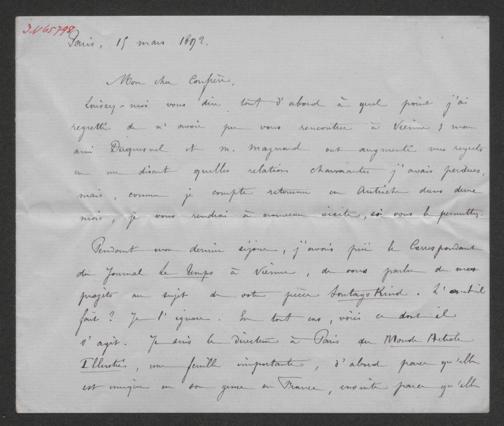 J.N 65798
Paris, 15 mars 1892.
Mon cher Confrère,
Laissez-moi vous dire tout d'abord à quel point j'ai
regretté de n'avoir pu vous rencontrer à Vienne ; mon
ami Duquesnel et M. Magnard ont augmenté mes regrets
en me disant quelles relations charmantes j'avais perdues.
mais, comme je compte retourner en Autriche dans deux
mois, je vous rendrai à nouveau visite, si vous le permettez.
Pendant mon dernier séjour, j'avais prié le Correspondant
du Journal le Temps à Vienne, de vous parler de mes
projets au sujet de votre pièce Sontags Kind. L'a-t-il
fait ? Je l'ignore. En tout cas, voici ce dont il
s'agit. Je suis le directeur à Paris du Monde Artiste
Illustré, une feuille importante, d'abord parce qu'elle
est unique en son genre en France, ensuite parce qu'elle